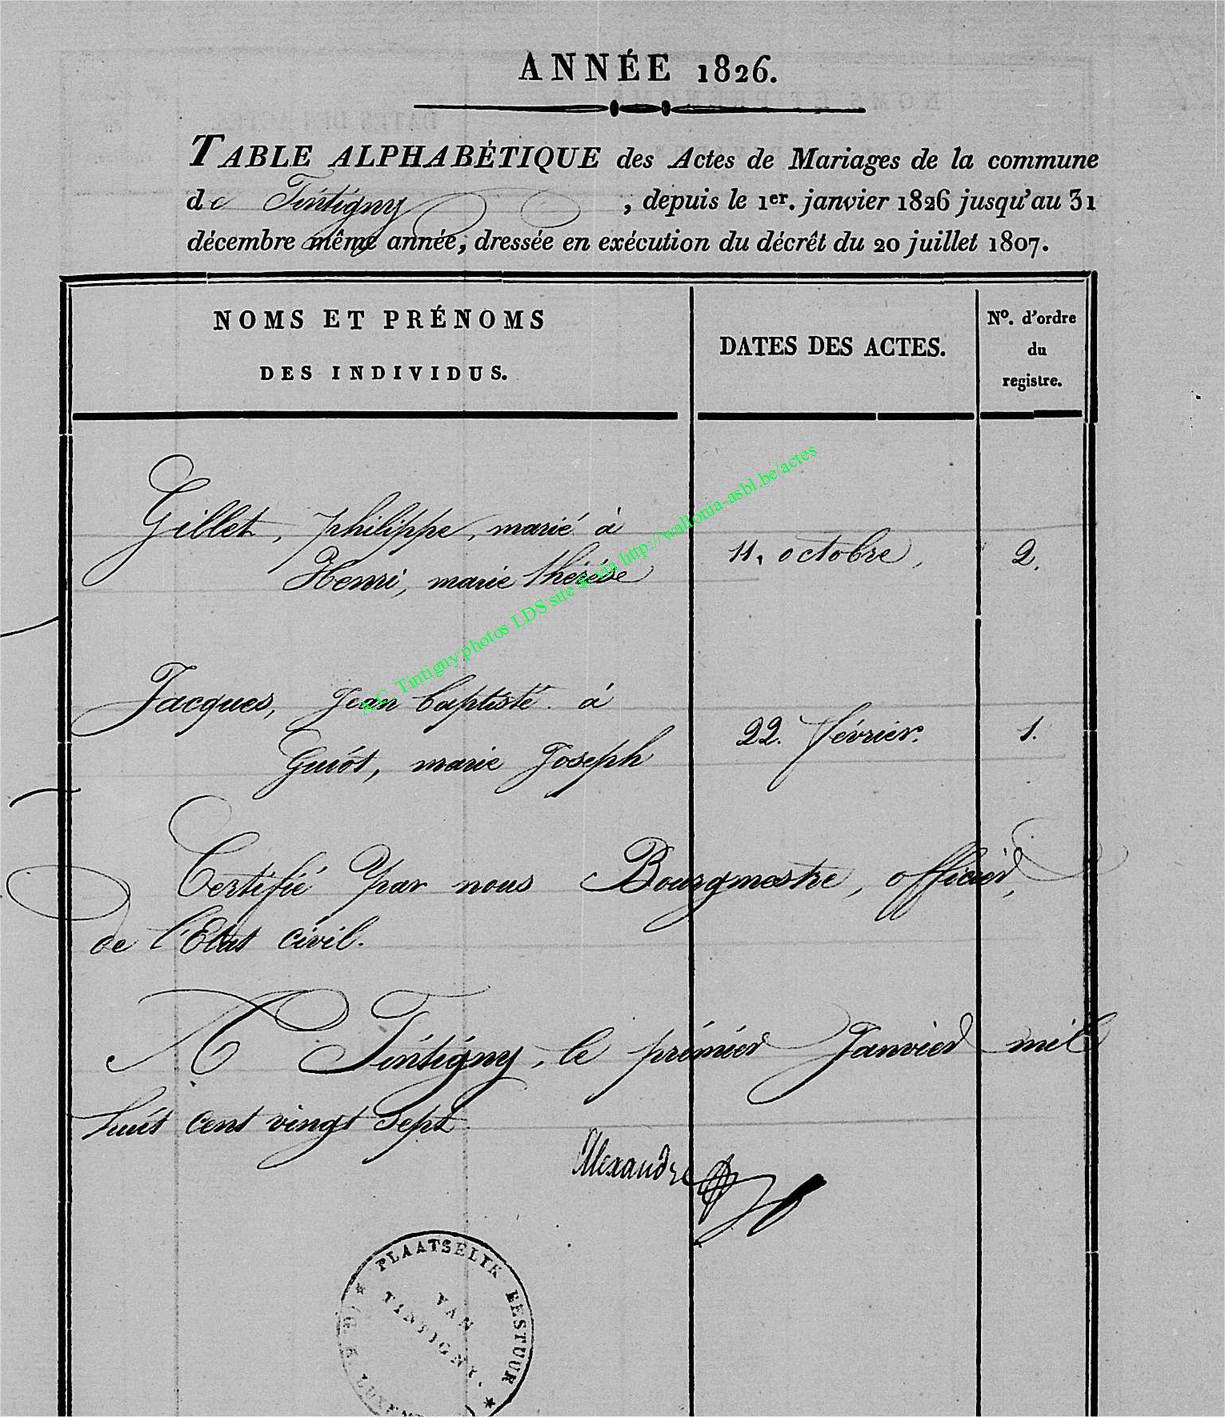 ANNÉE 1826.
TABLE ALPHABÉTIQUE des Actes de Mariages de la commune
de Tintigny, depuis le 1er. janvier 1826 jusqu'au 31
décembre même année, dressée en exécution du décrêt du 20 juillet 1807.
NOMS ET PRÉNOMS
DES INDIVIDUS.
DATES DES ACTES.
No. d'ordre
du
registre.
Gillet, philippe, marié à
Henri, marie thérèse
11, octobre, 2.
Jacques, Jean baptiste. à
Guiót, marie Joseph
22. février. 1.
Certifié par nous Bourgmestre, officier,
de l'Etat civil.
A Tintigny, le prémier Janvier mil
huit cent vingt sept
Alexandre
PLAATSELIK BESTUUR
VAN
TINTIGNY.
AC Tintigny photos LDS site via http://wallonia-asbl.be/actes